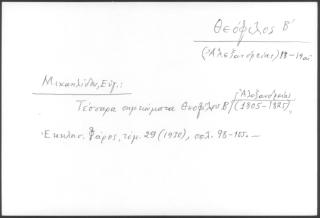 Θεόφιλος Β'
(Ἀλεξανδρείας)
Μιχαηλίδου, Εὐγ.:
Τέσσαρα σημειώματα Θεοφίλου Β' Ἀλεξανδρείας (1805-1825),
Ἐκκλησ. Φάρος, τόμ. 29 (1930), σελ. 98-105.—